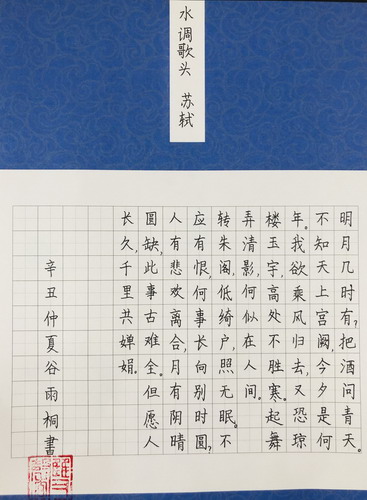 水调歌头 苏轼
明月几时有？把酒问青天。
不知天上宫阙，今夕是何
年。我欲乘风归去，又恐琼
楼玉宇，高处不胜寒。起舞
弄清影，何似在人间。
转朱阁，低绮户，照无眠。不
应有恨，何事长向别时圆？
人有悲欢离合，月有阴晴
圆缺，此事古难全。但愿人
长久，千里共婵娟。
辛丑仲夏谷雨桐書